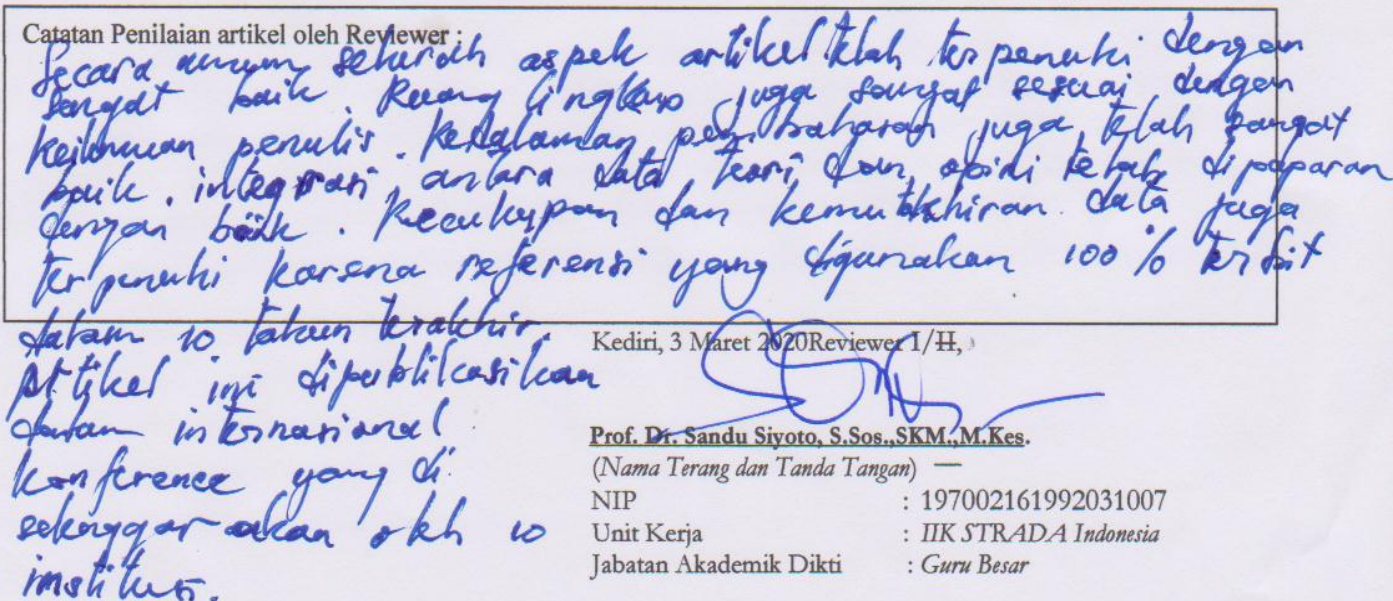 Catatan Penilaian artikel oleh Reviewer :
Secara umum seluruh aspek artikel telah terpenuhi dengan
sangat baik. Ruang lingkup juga sangat sesuai dengan
keilmuan penulis. Kedalaman pembahasan juga telah sangat
baik. integrasi antara data, teori dan opini telah dipaparan
dengan baik. Kecukupan dan kemutakhiran data juga
terpenuhi karena referensi yang digunakan 100 % terbit
dalam 10 tahun terakhir.
Artikel ini dipublikasikan
dalam internasional
konference yang di
selenggarakan oleh 10
institusi.
Kediri, 3 Maret 2020Reviewer I/II,
Prof. Dr. Sandu Siyoto, S.Sos.,SKM.,M.Kes.
(Nama Terang dan Tanda Tangan)
NIP : 197002161992031007
Unit Kerja : IIK STRADA Indonesia
Jabatan Akademik Dikti : Guru Besar